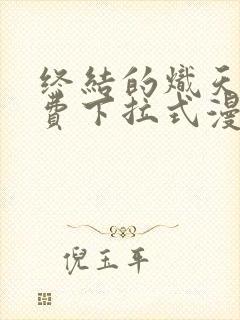 终结的炽天
费下拉式漫
倪玉平